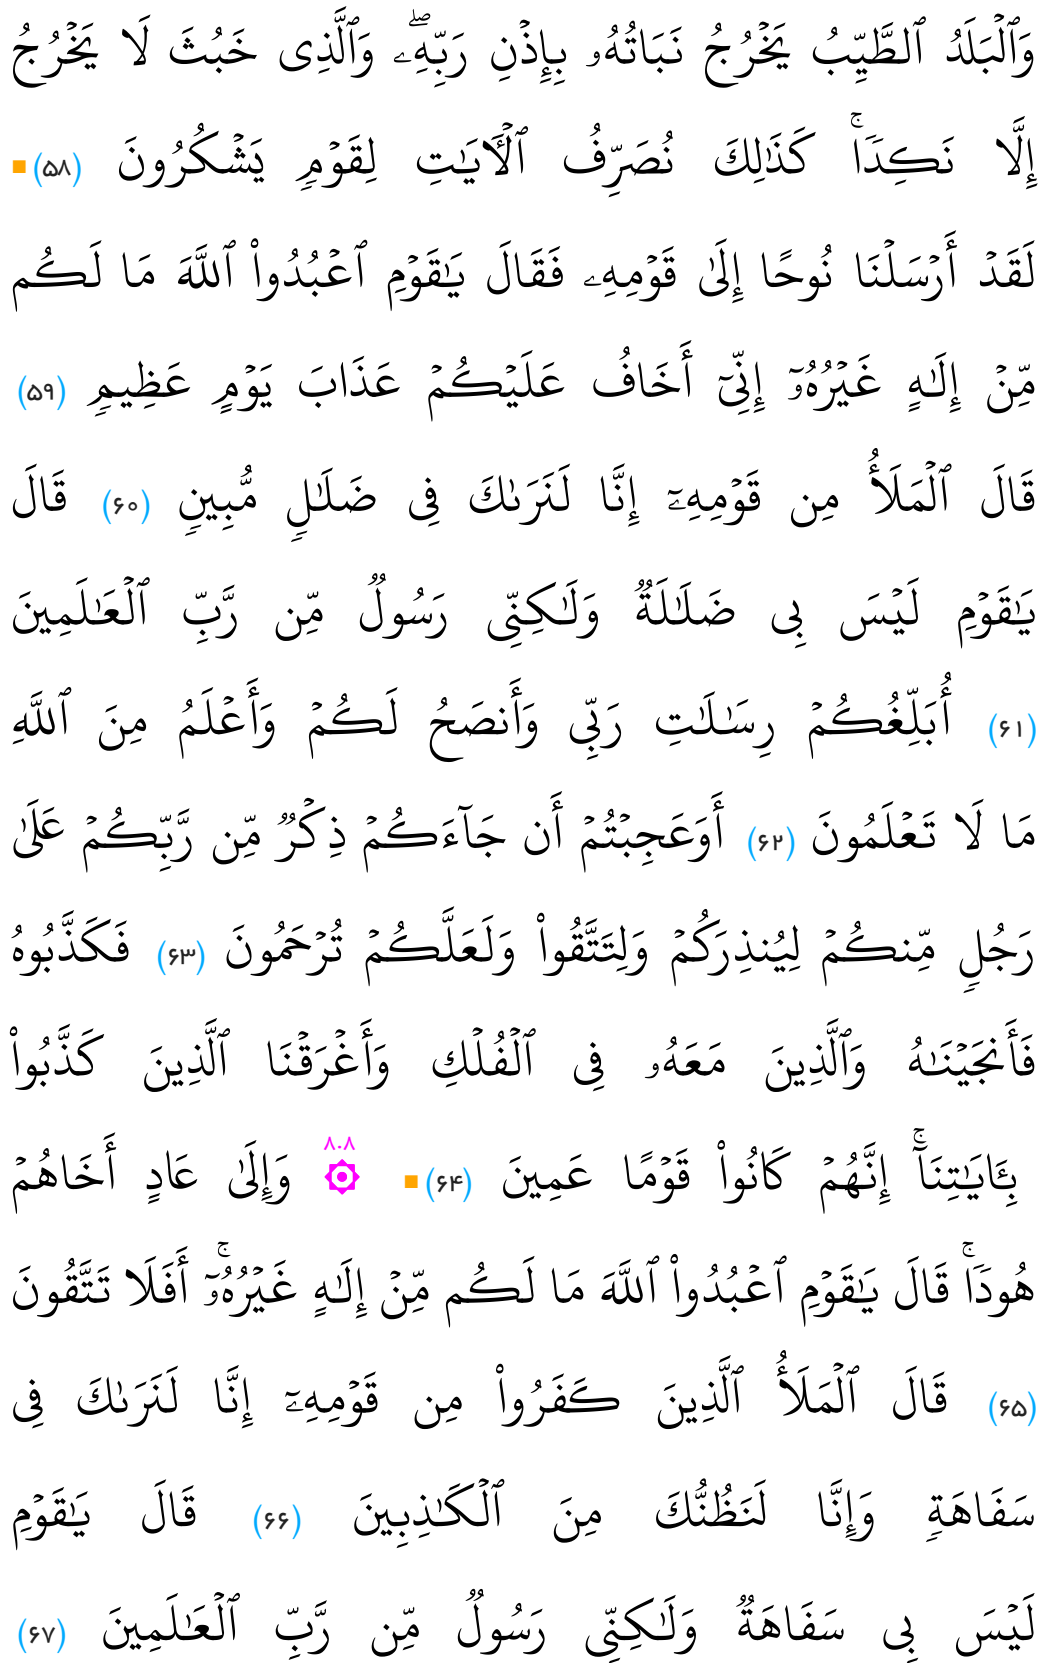 وَٱلْبَلَدُ ٱلطَّيِّبُ يَخْرُجُ نَبَاتُهُۥ بِإِذْنِ رَبِّهِۦۖ وَٱلَّذِى خَبُثَ لَا يَخْرُجُ
إِلَّا نَكِدًاۚ كَذَٰلِكَ نُصَرِّفُ ٱلْـَٔايَـٰتِ لِقَوْمٍ يَشْكُرُونَ (۵۸)
لَقَدْ أَرْسَلْنَا نُوحًا إِلَىٰ قَوْمِهِۦ فَقَالَ يَـٰقَوْمِ ٱعْبُدُوا۟ ٱللَّهَ مَا لَكُم
مِّنْ إِلَـٰهٍ غَيْرُهُۥٓ إِنِّىٓ أَخَافُ عَلَيْكُمْ عَذَابَ يَوْمٍ عَظِيمٍ (۵۹)
قَالَ ٱلْمَلَأُ مِن قَوْمِهِۦٓ إِنَّا لَنَرَىٰكَ فِى ضَلَـٰلٍ مُّبِينٍ (۶۰) قَالَ
يَـٰقَوْمِ لَيْسَ بِى ضَلَـٰلَةٌ وَلَـٰكِنِّى رَسُولٌ مِّن رَّبِّ ٱلْعَـٰلَمِينَ
(۶۱) أُبَلِّغُكُمْ رِسَـٰلَـٰتِ رَبِّى وَأَنصَحُ لَكُمْ وَأَعْلَمُ مِنَ ٱللَّهِ
مَا لَا تَعْلَمُونَ (۶۲) أَوَعَجِبْتُمْ أَن جَآءَكُمْ ذِكْرٌ مِّن رَّبِّكُمْ عَلَىٰ
رَجُلٍ مِّنكُمْ لِيُنذِرَكُمْ وَلِتَتَّقُوا۟ وَلَعَلَّكُمْ تُرْحَمُونَ (۶۳) فَكَذَّبُوهُ
فَأَنجَيْنَـٰهُ وَٱلَّذِينَ مَعَهُۥ فِى ٱلْفُلْكِ وَأَغْرَقْنَا ٱلَّذِينَ كَذَّبُوا۟
بِـَٔايَـٰتِنَآۚ إِنَّهُمْ كَانُوا۟ قَوْمًا عَمِينَ (۶۴) ۸.۸ ۞ وَإِلَىٰ عَادٍ أَخَاهُمْ
هُودًاۚ قَالَ يَـٰقَوْمِ ٱعْبُدُوا۟ ٱللَّهَ مَا لَكُم مِّنْ إِلَـٰهٍ غَيْرُهُۥٓۚ أَفَلَا تَتَّقُونَ
(۶۵) قَالَ ٱلْمَلَأُ ٱلَّذِينَ كَفَرُوا۟ مِن قَوْمِهِۦٓ إِنَّا لَنَرَىٰكَ فِى
سَفَاهَةٍ وَإِنَّا لَنَظُنُّكَ مِنَ ٱلْكَـٰذِبِينَ (۶۶) قَالَ يَـٰقَوْمِ
لَيْسَ بِى سَفَاهَةٌ وَلَـٰكِنِّى رَسُولٌ مِّن رَّبِّ ٱلْعَـٰلَمِينَ (۶۷)